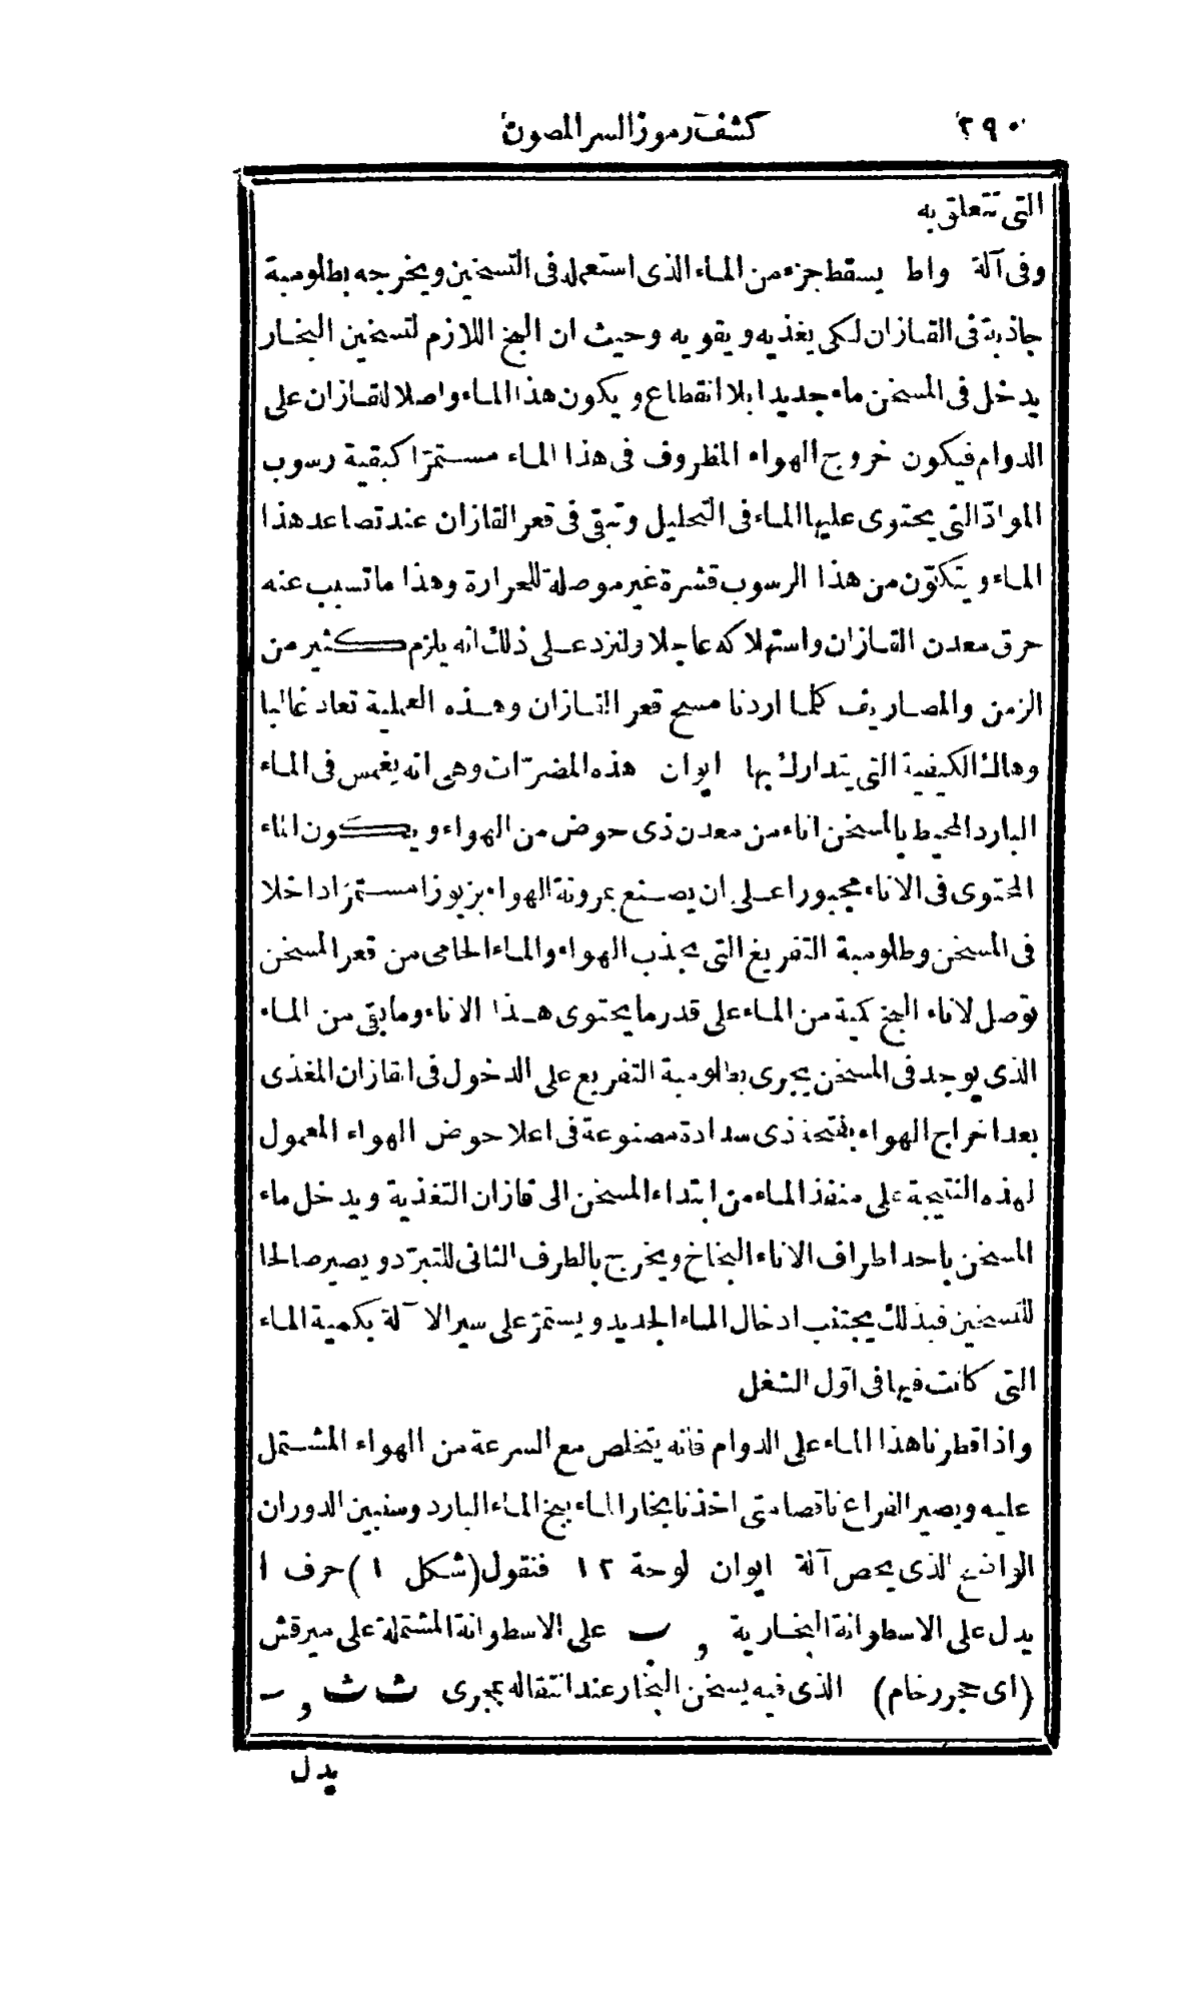 ٢٩٠ كشف رموز السر المصون
التى تتعلق به
وفى آلة واط يسقط جزء من الماء الذى استعمل فى التسخين ويخرجه بطلومبة
جاذبة فى القازان لكى يغذيه ويقويه وحيث ان البخ اللازم لتسخين البخار
يدخل فى المسخن ماء جديدا بلا انقطاع ويكون هذا الماء واصلا للقازان على
الدوام فيكون خروج الهواء المظروف فى هذا الماء مستمرّا كبقية رسوب
الموادّ التى يحتوى عليها الماء فى التحليل وتبقى فى قعر القازان عند تصاعد هذا
الماء ويتكوّن من هذا الرسوب قشرة غير موصلة للحرارة وهذا ما تسبب عنه
حرق معدن القازان واستهلاكه عاجلا ولنزد على ذلك انه يلزم كثير من
الزمن والمصاريف كلما اردنا مسح قعر القازان وهذه العملية تعاد غالبا
وهاك الكيفية التى يتدارك بها ايوان هذه المضرّات وهى انه يغمس فى الماء
البارد المحيط بالمسخن اناء من معدن ذى حوض من الهواء ويكون الماء
المحتوى فى الاناء مجبورا على ان يصنع بمرونة الهواء بزبوزا مستمرّا داخلا
فى المسخن وطلومبة التفريغ التى تجذب الهواء والماء الحامى من قعر المسخن
توصل لاناء البخ كمية من الماء على قدر ما يحتوى هذا الاناء وما بقى من الماء
الذى يوجد فى المسخن يجرى بطلومبة التفريغ على الدخول فى القازان المغذى
بعد اخراج الهواء بفتحة ذى سدادة مصنوعة فى اعلا حوض الهواء المعمول
لهذه النتيجة على منفذ الماء من ابتداء المسخن الى قازان التغذية ويدخل ماء
المسخن باحد اطراف الاناء البخاخ ويخرج بالطرف الثانى للتبرّد ويصير صالحا
للتسخين فبذلك يجتنب ادخال الماء الجديد ويستمرّ على سير الآلة بكمية الماء
التى كانت فيها فى اوّل الشغل
واذا قطرنا هذا الماء على الدوام فانه يتخلص مع السرعة من الهواء المشتمل
عليه ويصير الفراغ ناقصا متى اخذنا بخار الماء ببخ الماء البارد وسنبين الدوران
الواضح الذى يخص آلة ايوان لوحة ١٢ فنقول (شكل ١) حرف ا
يدل على الاسطوانة البخارية و ب على الاسطوانة المشتملة على ميرقش
(اى حجر رخام) الذى فيه يسخن البخار عند انتقاله بمجرى ث ث و ـ
يدل